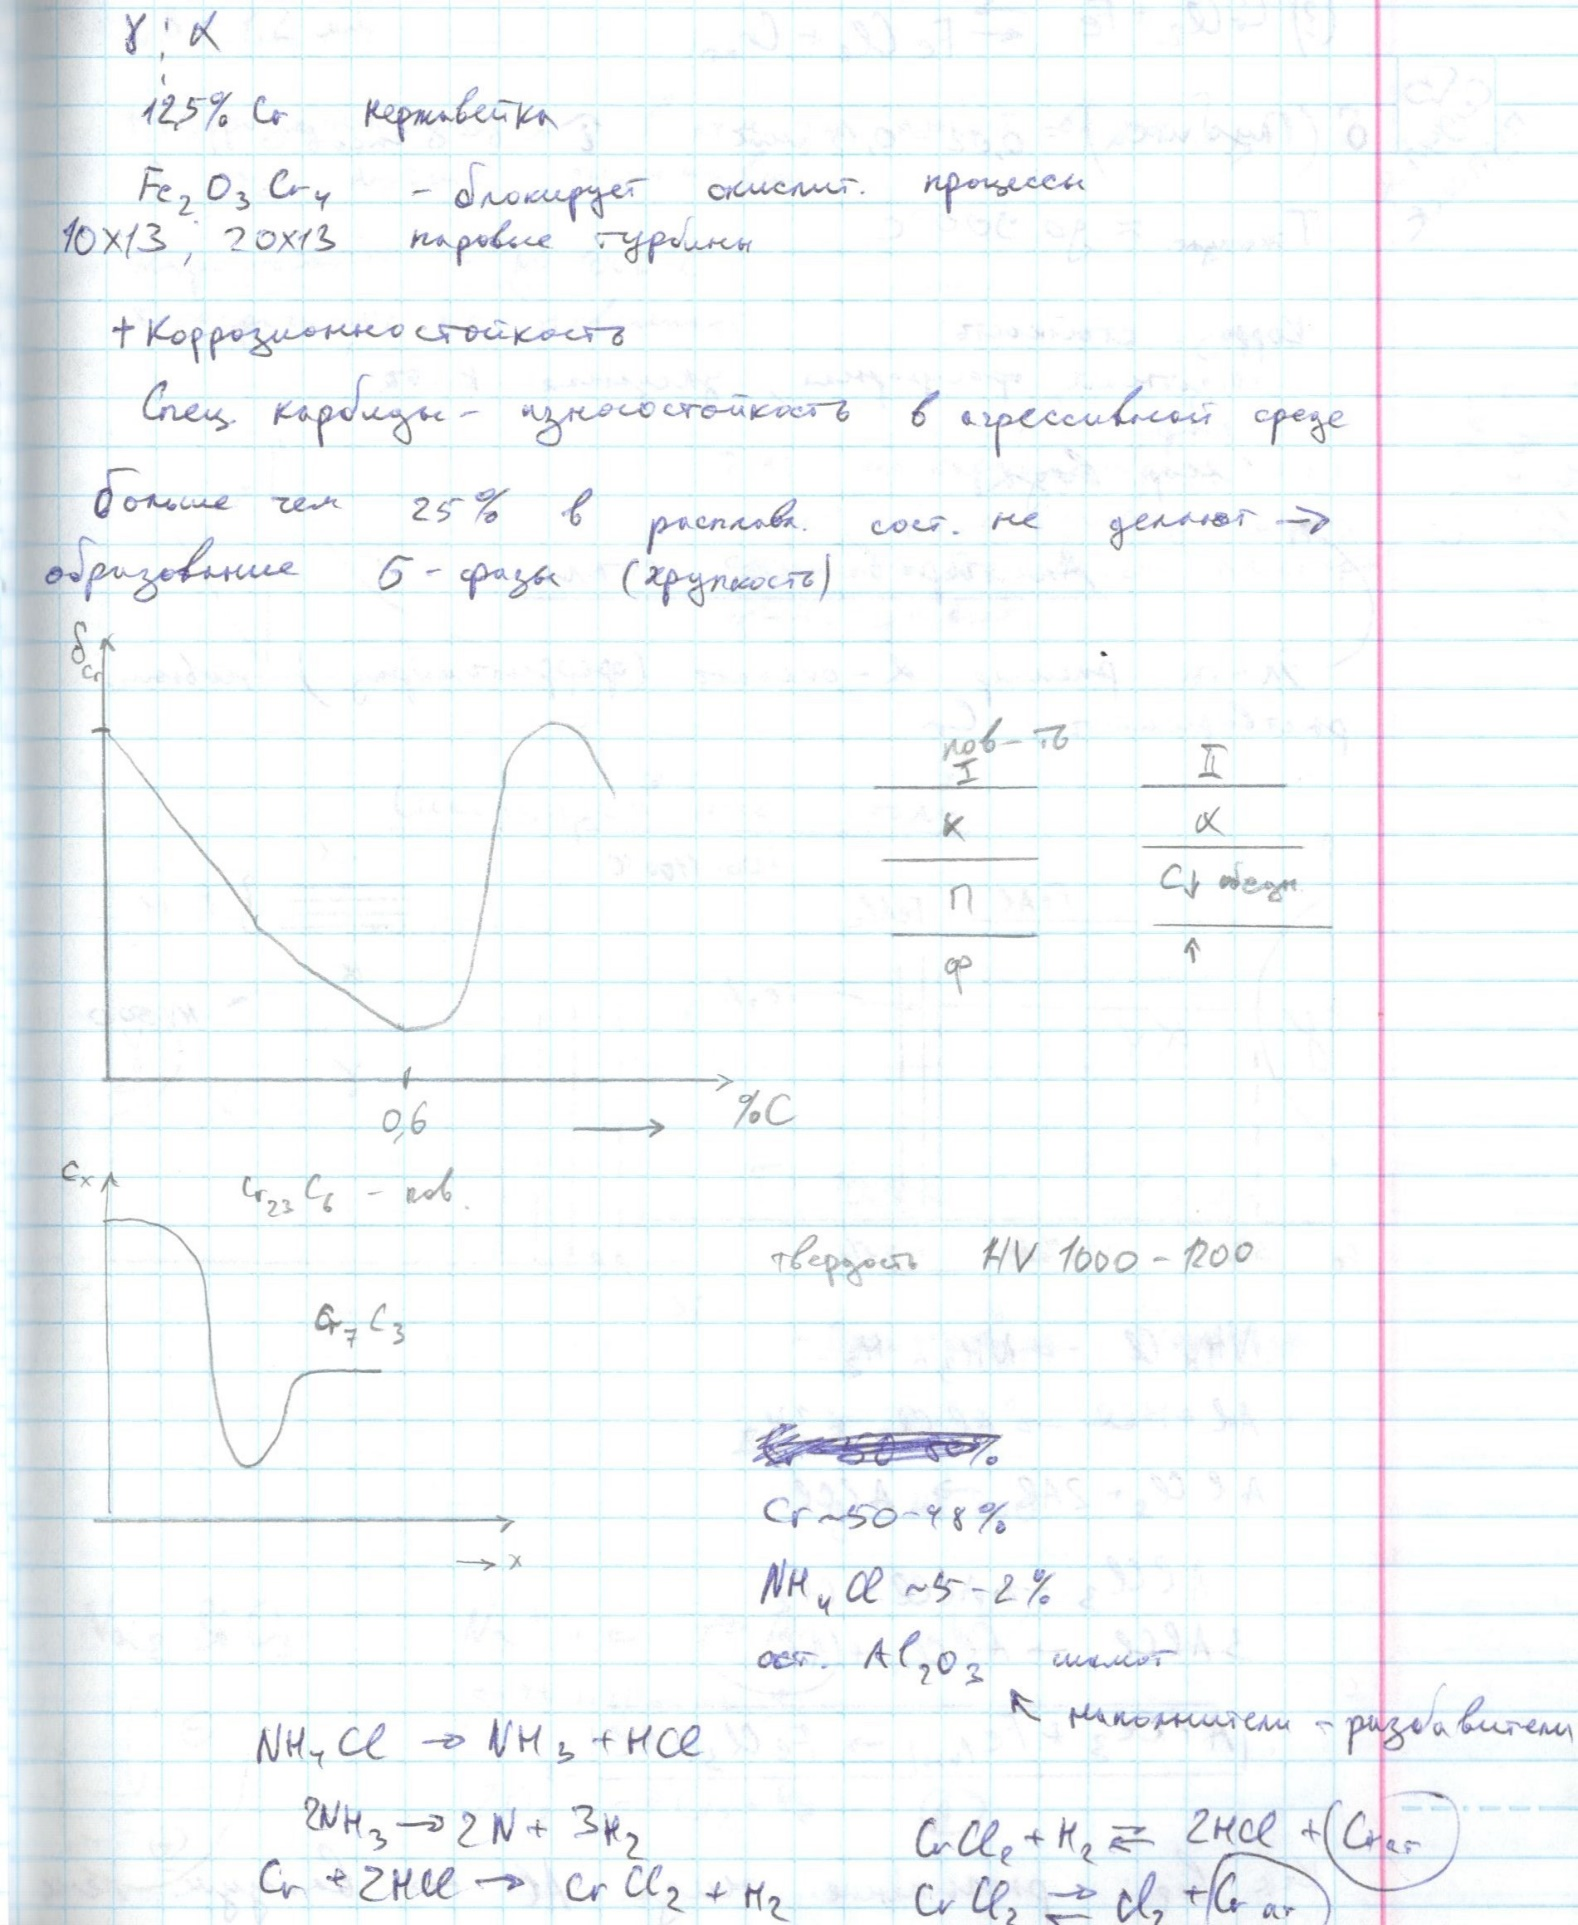 γ ¦ α
12,5% Cr нержавейка
Fe2O3Cr4 - блокирует окислит. процессы
10х13 ; 20х13 паровые турбины
+ Коррозионностойкость
Спец. карбиды - износостойкость в агрессивной среде
Больше чем 25% в расплав. сост. не делают →
образование б - фазы (хрупкость)
δCr
пов-ть
I II
К α
П C↓ обедн.
Ф ↑
0,6 → %C
Cx
Cr23C6 - пов.
твердость HV 1000 - 1200
Cr7C3
Cr ~50-48%
→ x
NH4Cl ~5-2%
ост. Al2O3 шамот
↖ наполнители - разбавители
NH4Cl → NH3 + HCl
2NH3 → 2N + 3H2
CrCl2 + H2 ⇌ 2HCl + Crат
Cr + 2HCl → CrCl2 + H2
CrCl2 ⇌ Cl2 + Crат